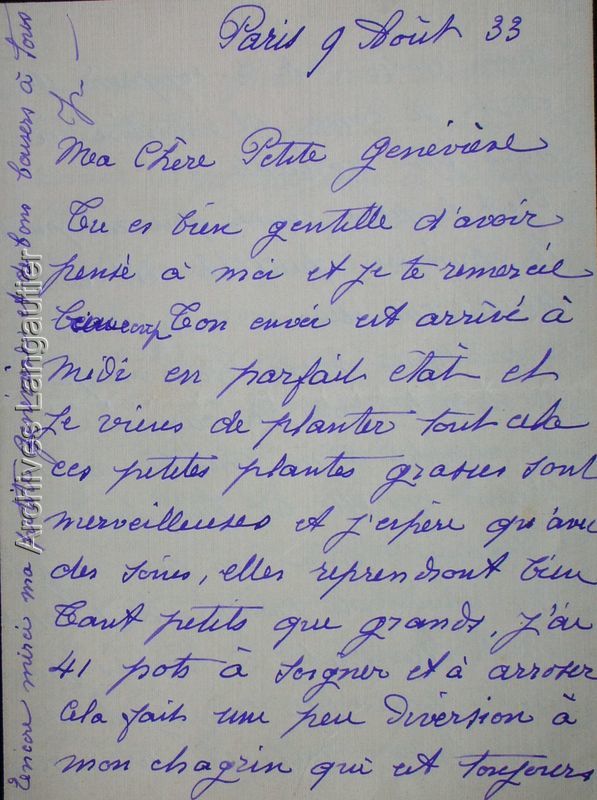 Paris 9 Août 33
Ma Chère Petite Geneviève
Tu es bien gentille d'avoir
pensé à moi et je te remercie
beaucoup Ton envoi est arrivé à
Midi en parfait état et
je viens de planter tout cela
ces petites plantes grasses sont
merveilleuses et j'espère qu'avec
des soins, elles reprendront bien
Tant petits que grands, j'ai
41 pots à soigner et à arroser
Cela fait une peu diversion à
mon chagrin qui est toujours
Encore merci ma petite Geneviève et bons baisers à Tous
Archives Langautier